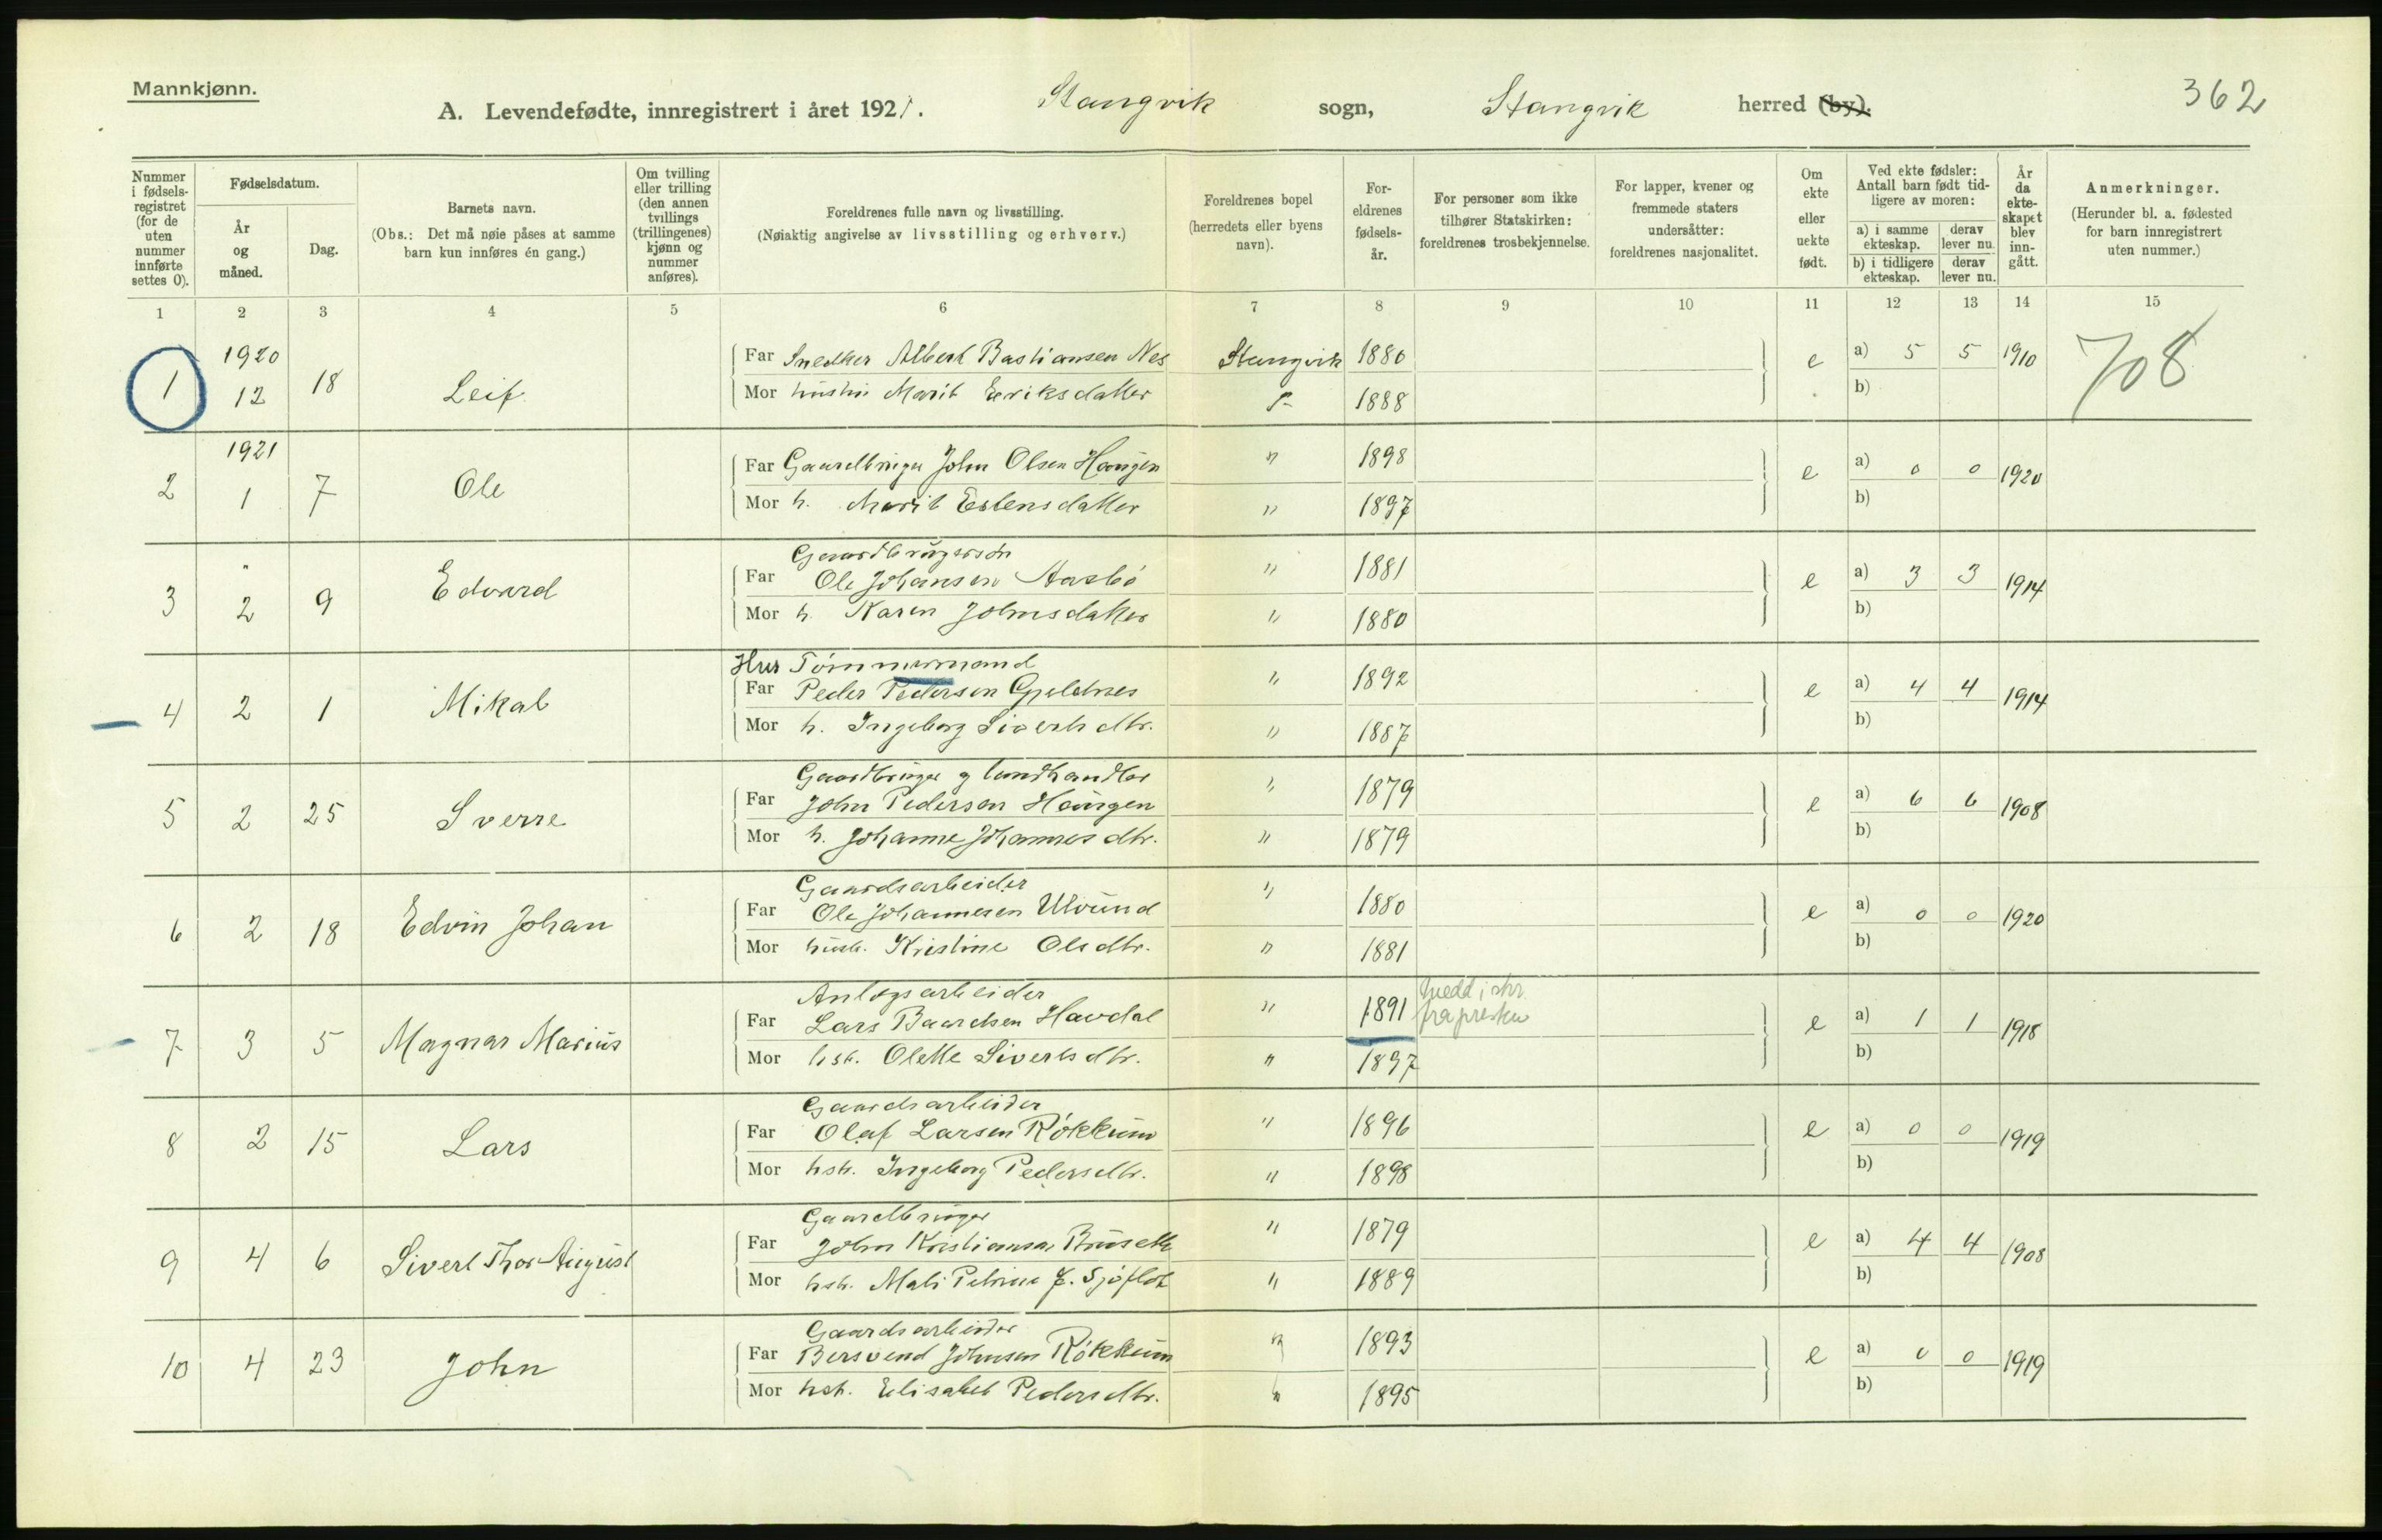 Mannkjønn.
362
A. Levendefødte, innregistrert i året 1921. Stangvik sogn, Stangvik herred (by).
Nummer i fødsels-registret (for de uten nummer innførte settes 0).
Fødselsdatum.
År og måned.
Dag.
Barnets navn.
(Obs.: Det må nøie påses at samme barn kun innføres én gang.)
Om tvilling eller trilling (den annen tvillings (trillingenes) kjønn og nummer anføres).
Foreldrenes fulle navn og livsstilling.
(Nøiaktig angivelse av livsstilling og erhverv.)
Foreldrenes bopel (herredets eller byens navn).
For-eldrenes fødsels-år.
For personer som ikke tilhører Statskirken: foreldrenes trosbekjennelse.
For lapper, kvener og fremmede staters undersåtter: foreldrenes nasjonalitet.
Om ekte eller uekte født.
Ved ekte fødsler: Antall barn født tid-ligere av moren:
a) i samme ekteskap.
derav lever nu.
b) i tidligere ekteskap.
derav lever nu.
År da ekte-skapet blev inn-gått.
Anmerkninger.
(Herunder bl. a. fødested for barn innregistrert uten nummer.)
1 2 3 4 5 6 7 8 9 10 11 12 13 14 15
1 1920 12 18 Leif
Far Snedker Albert Bastiansen Nes Stangvik 1880 e a) 5 5 1910 708
Mor hustru Marit Eeriksdatter 1888 b)
2 1921 1 7 Ole
Far Gaardbruger John Olsen Haugen " 1898 e a) 0 0 1920
Mor h. Marit Estensdatter " 1897 b)
Gaardbrugersøn
3 " 2 9 Edvard
Far Ole Johansen Aasbø " 1881 e a) 3 3 1914
Mor h. Karen Johnsdatter " 1880 b)
Hus Tømmermand
4 2 1 Mikal
Far Peder Pedersen Gjeldnes " 1892 e a) 4 4 1914
Mor h. Ingeborg Sivertsdtr. " 1887 b)
Gaardbruger og landhandler
5 2 25 Sverre
Far John Pedersen Haugen " 1879 e a) 6 6 1908
Mor h. Johanne Johannesdtr. " 1879 b)
Gaardsarbeider
6 2 18 Edvin Johan
Far Ole Johannesen Ulvund " 1880 e a) 0 0 1920
Mor hustr. Kristine Olsdtr. " 1881 b)
Anlegsarbeider
7 3 5 Magnar Marius
Far Lars Baardsen Havdal " 1891 e a) 1 1 1918
Mor hst. Olette Sivertsdtr. " 1897 b)
Gaardsarbeider
8 2 15 Lars
Far Olaf Larsen Røkkum " 1896 e a) 0 0 1919
Mor hstr. Ingeborg Pedersdtr. " 1898 b)
Gaardbruger
9 4 6 Sivert Thor August
Far John Kristiansen Bruseth " 1879 e a) 4 4 1908
Mor hstr. Mali Petrine J. Sjøflot " 1889 b)
Gaardsarbeider
10 4 23 John
Far Bersvend Johnsen Røkkum " 1893 e a) 0 0 1919
Mor hstr. Elisabet Pedersdtr. " 1895 b)